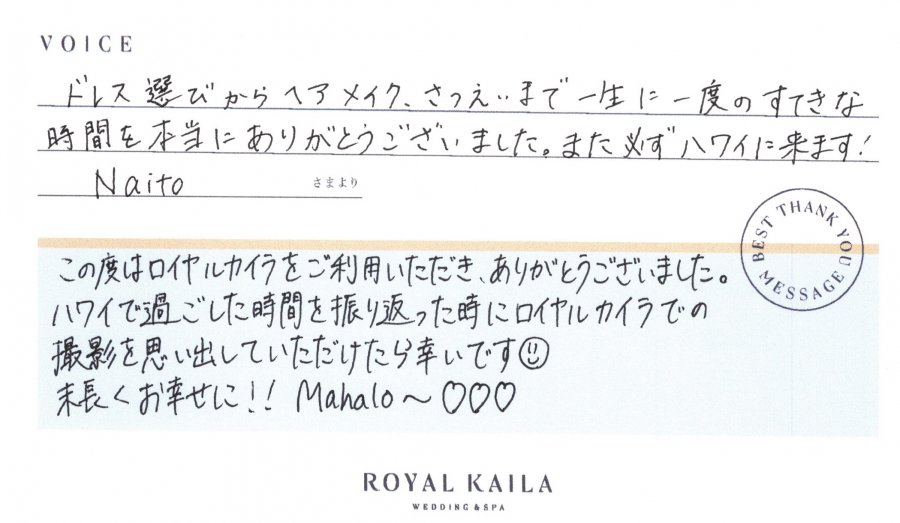 VOICE
ドレス選びからヘアメイク、さつえいまで一生に一度のすてきな
時間を本当にありがとうございました。また必ずハワイに来ます!
Naito さまより
BEST THANK YOU MESSAGE
この度はロイヤルカイラをご利用いただき、ありがとうございました。
ハワイで過ごした時間を振り返った時にロイヤルカイラでの
撮影を思い出していただけたら幸いです☺
末長くお幸せに!! Mahalo〜♡♡♡
ROYAL KAILA
WEDDING & SPA